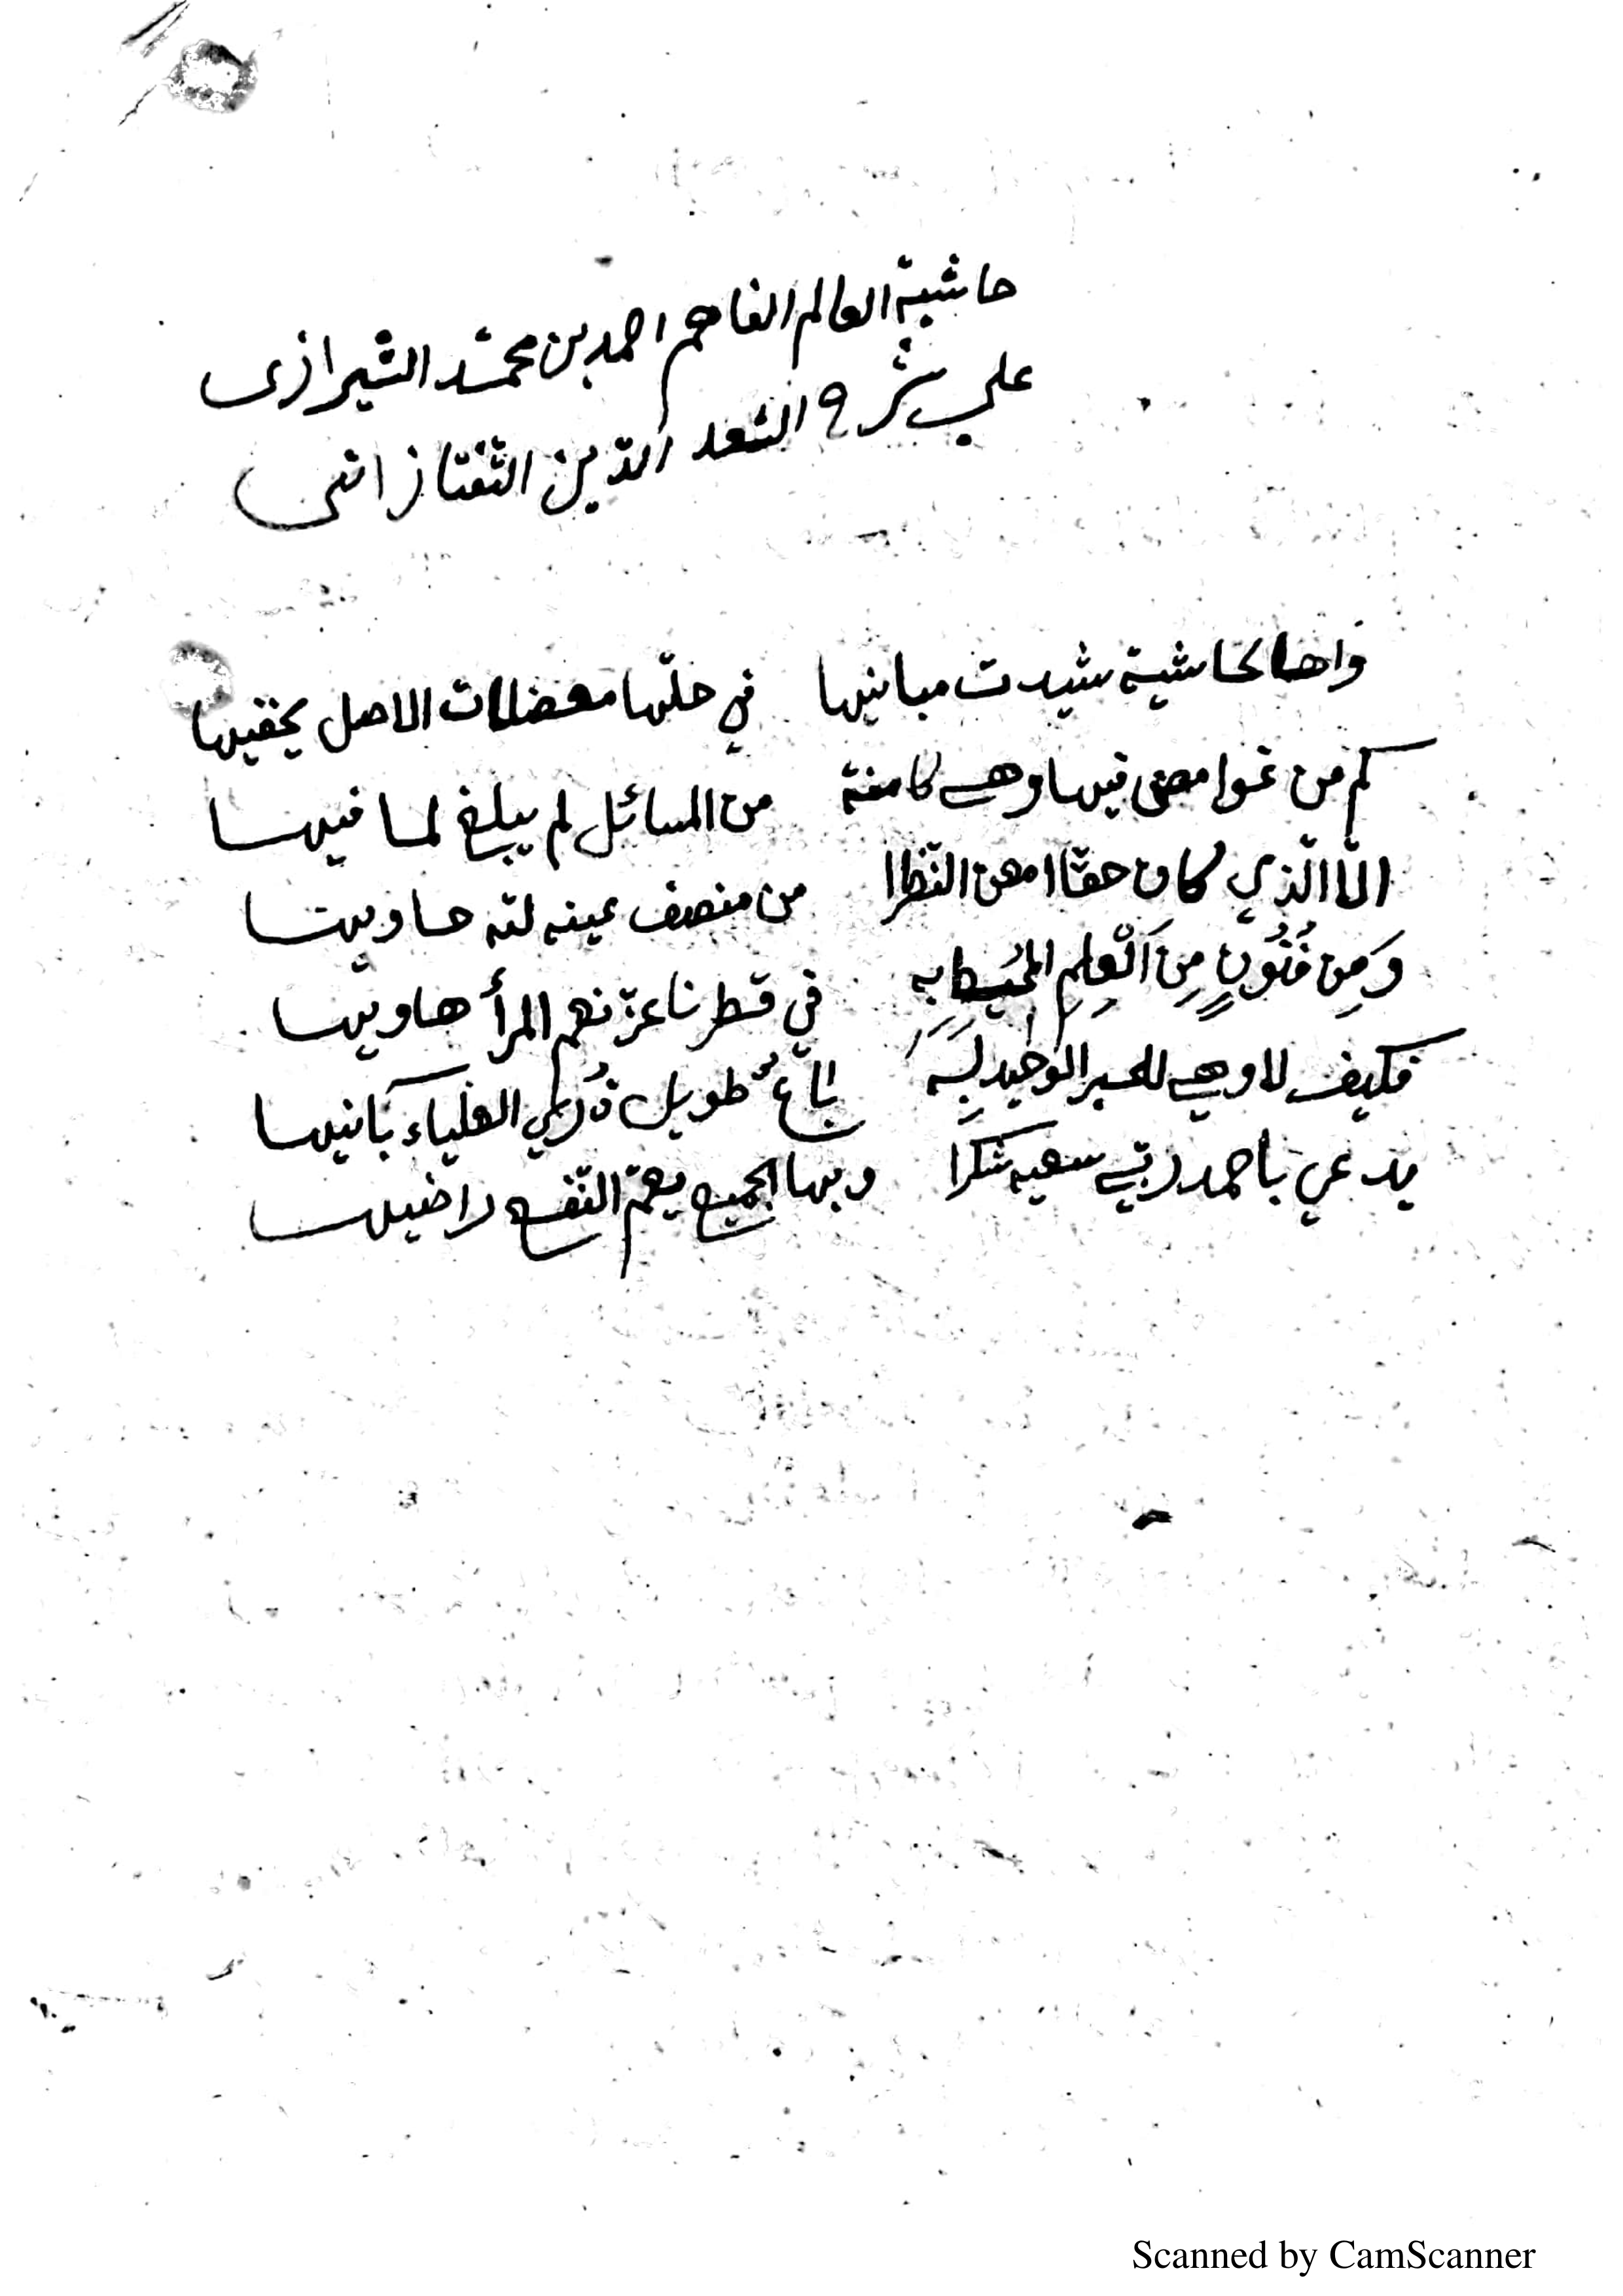 حاشية العالم الفاهم احمد بن محمّد الشيرازى
علي شرح السّعد الدّين التفتازانى
واها لحاشية شيدت مبانيها في حلّها معضلات الاصل يخفيها
كم من غوامض فيها وهي كامنة من المسائل لم يبلغ لما فيها
الّا الّذي كان حقّا امعن النّظرا من منصف عينه لله حاويها
وَمِن فُنُونٍ مِنَ الْعِلمِ المُحيط بِهِ في قطرنا عزّ نعم المرأ هاويها
فكيف لا وهي للحبر الوحيد لَهُ بَاعٌ طويل ذُرَي العلياء بَانيها
يدعي باحمد ربّي سعيه شكرا وبها الجميع يعمّ النّفع راضيها
Scanned by CamScanner